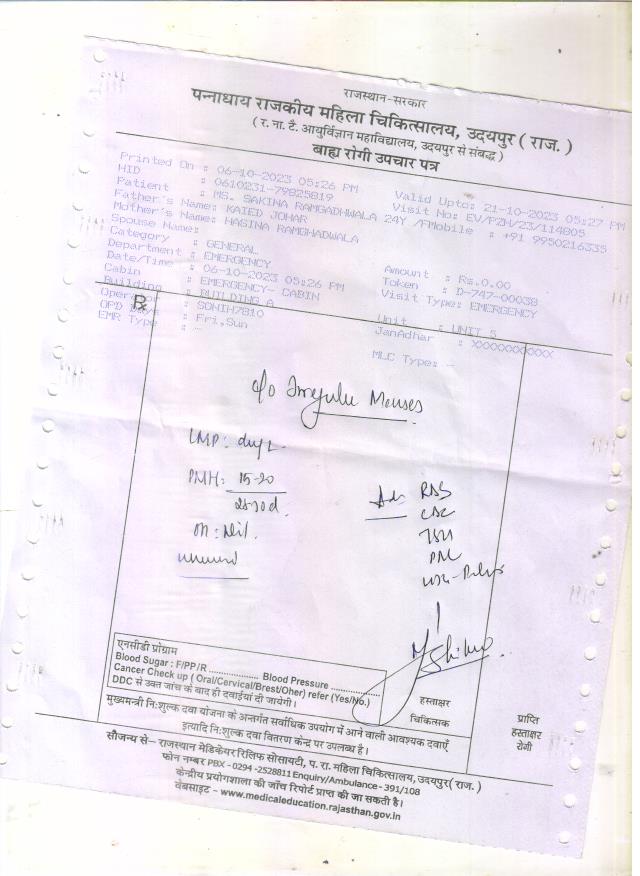 राजस्थान-सरकार
पन्नाधाय राजकीय महिला चिकित्सालय, उदयपुर ( राज. )
( र. ना. टै. आयुर्विज्ञान महाविद्यालय, उदयपुर से संबद्ध )
बाह्य रोगी उपचार पत्र
Printed On : 06-10-2023 05:26 PM Valid Upto: 21-10-2023 05:27 PM
HID : 0610231-79825819 Visit No: EV/PZH/23/114805
Patient : MS. SAKINA RAMGADHWALA 24Y /F Mobile : +91 9950216335
Father's Name: KAIED JOHAR
Mother's Name: HASINA RAMGHADWALA
Spouse Name:
Category : GENERAL Amount : Rs.0.00
Department : EMERGENCY Token : D-747-00038
Date/Time : 06-10-2023 05:26 PM Visit Type: EMERGENCY
Cabin : EMERGENCY- CABIN
Building : BUILDING A Unit : UNIT 5
Operator : SONIH7810 JanAdhar : XXXXXXXXXXX
OPD Days : Fri,Sun
EMR Type : - MLC Type: -
Rx
c/o Irregular Menses
LMP:
PMH: 15-20
28-30d.
OH: Nil.
unmarried
Adv RBS
CBC
TSH
PRL
USG-Pelvis
एनसीडी प्रोग्राम
Blood Sugar : F/PP/R .................. Blood Pressure ..................
Cancer Check up ( Oral/Cervical/Brest/Oher) refer (Yes/No.)
DDC से उक्त जांच के बाद ही दवाईयां दी जायेगी।
हस्ताक्षर
चिकित्सक
प्राप्ति
हस्ताक्षर
रोगी
मुख्यमन्त्री नि:शुल्क दवा योजना के अन्तर्गत सर्वाधिक उपयोग में आने वाली आवश्यक दवाएँ
इत्यादि नि:शुल्क दवा वितरण केन्द्र पर उपलब्ध है।
सौजन्य से– राजस्थान मेडिकेयर रिलिफ सोसायटी, प. रा. महिला चिकित्सालय, उदयपुर( राज. )
फोन नम्बर PBX - 0294 -2528811 Enquiry/Ambulance - 391/108
केन्द्रीय प्रयोगशाला की जाँच रिपोर्ट प्राप्त की जा सकती है।
वेबसाइट - www.medicaleducation.rajasthan.gov.in